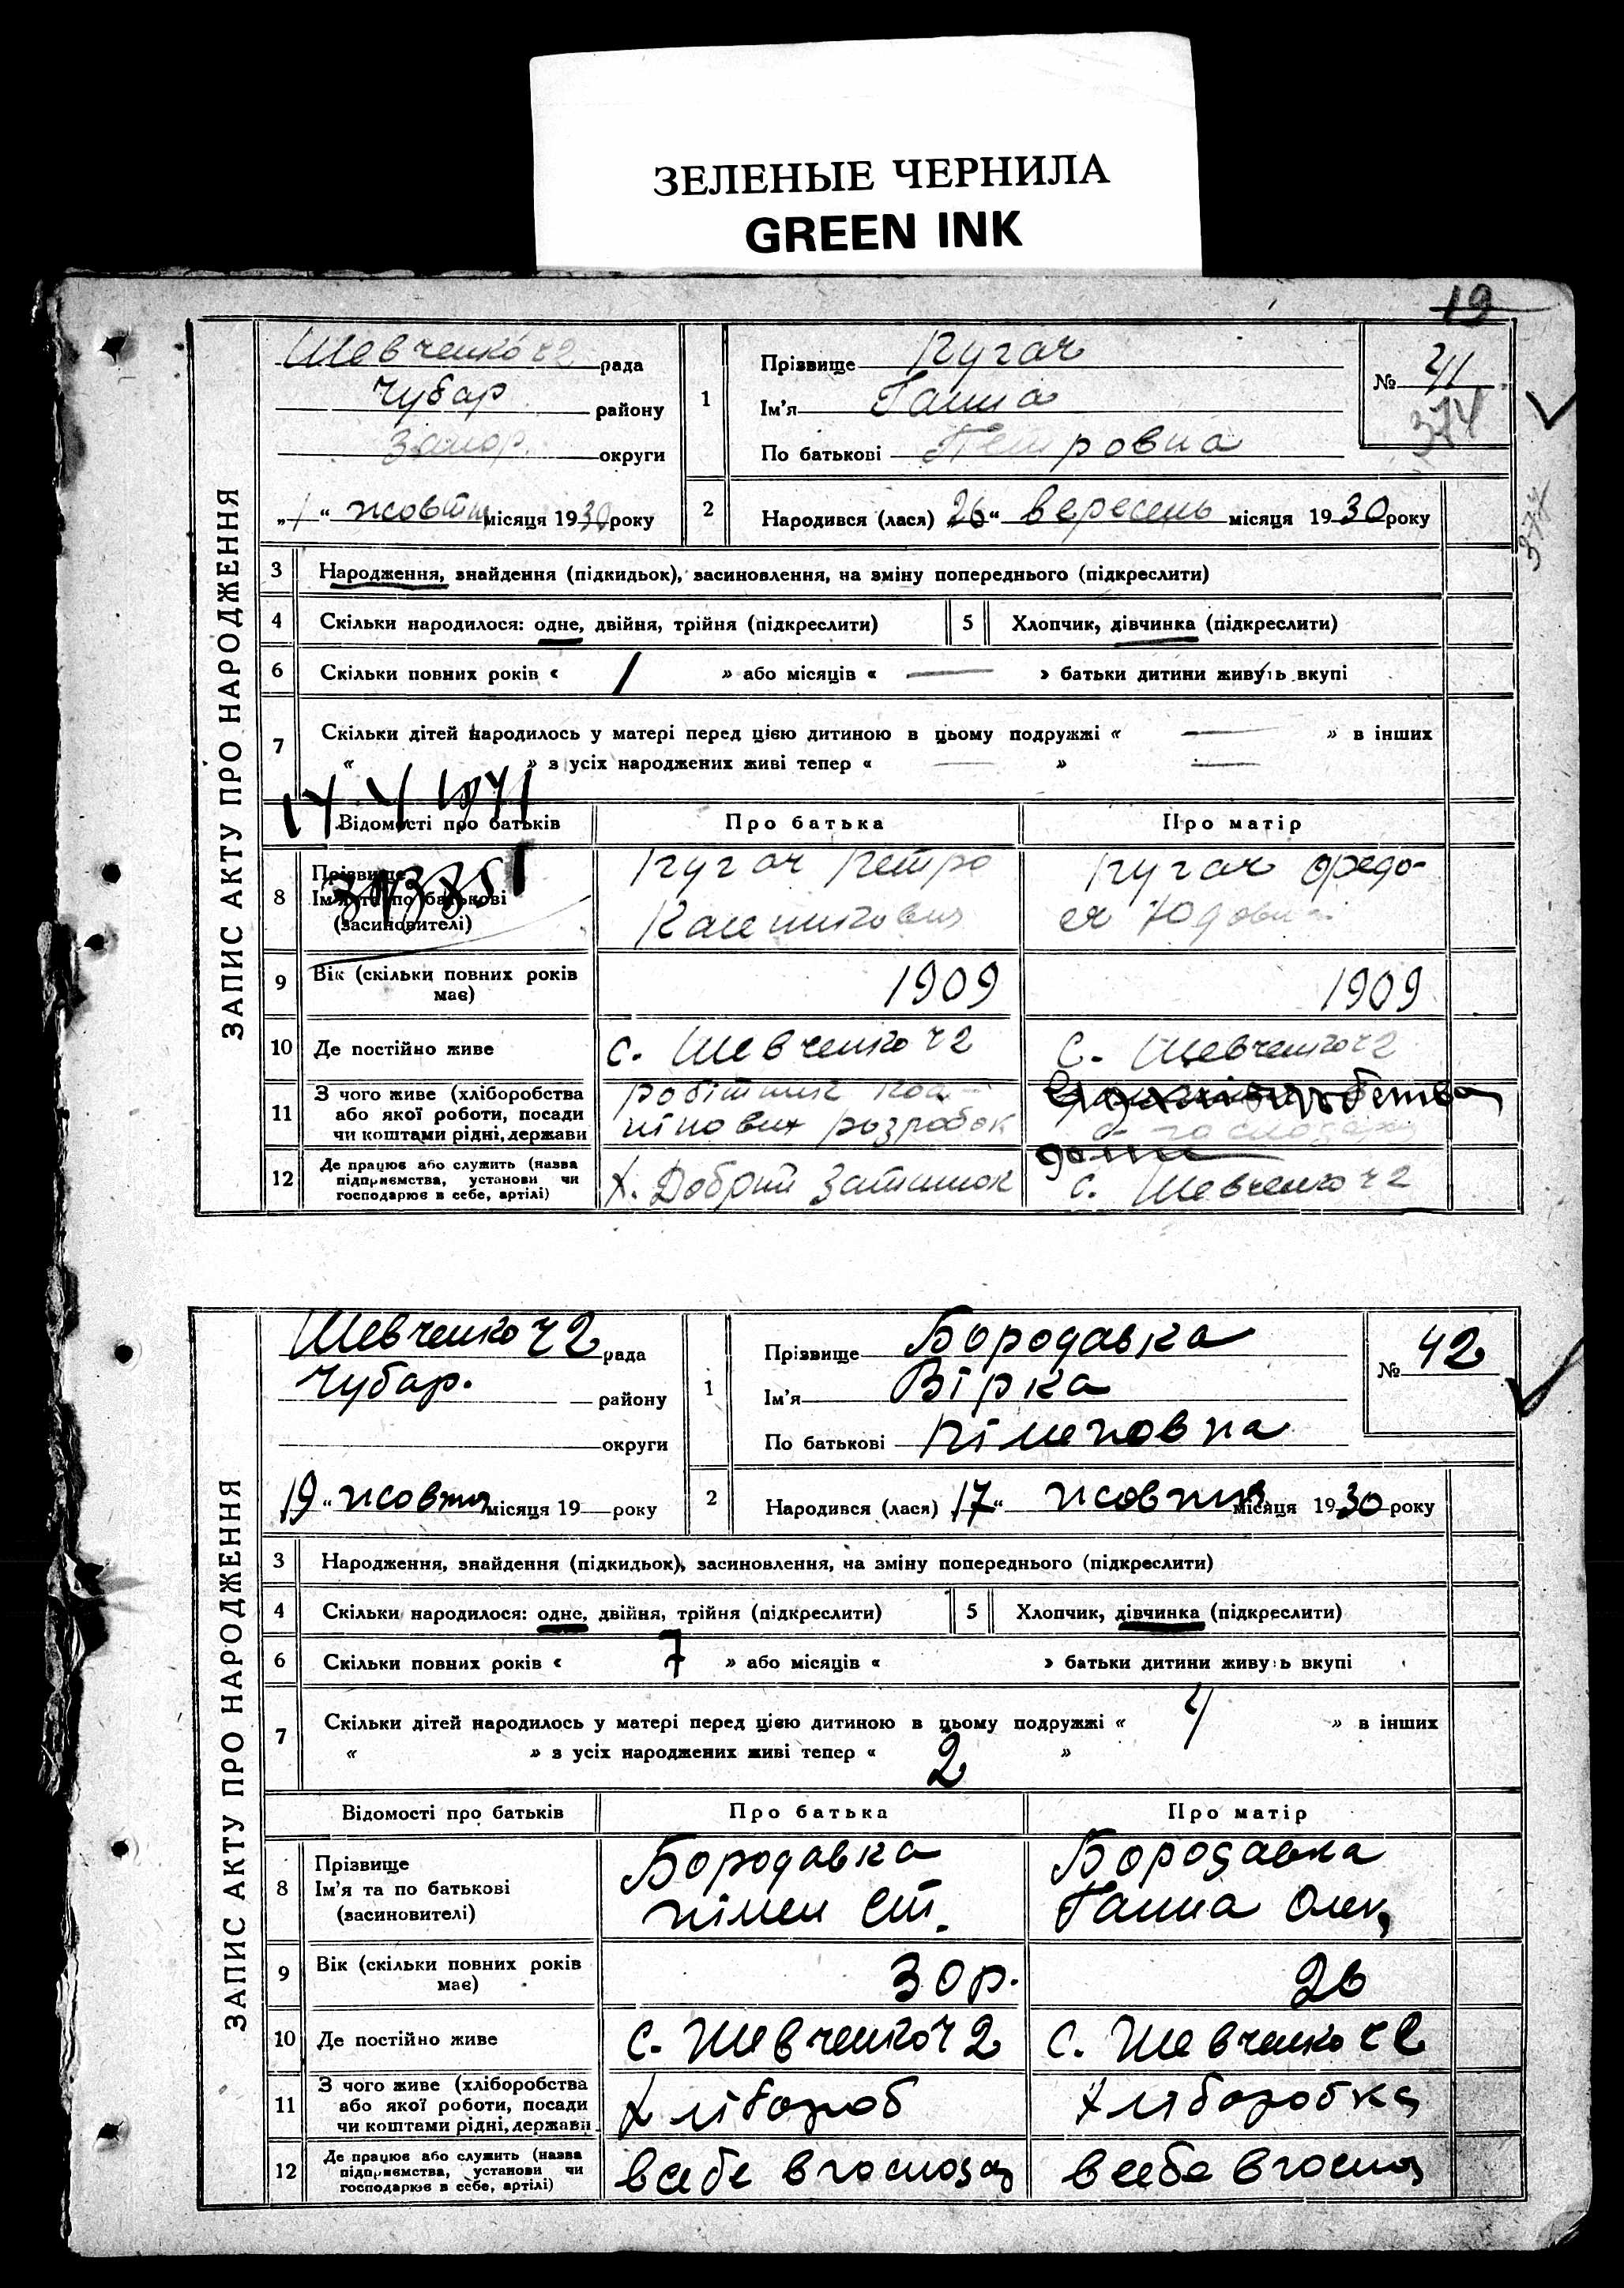 ЗЕЛЕНЫЕ ЧЕРНИЛА
GREEN INK
19
ЗАПИС АКТУ ПРО НАРОДЖЕННЯ
Шевченко ч 2 рада
Чубар районy
Запор. округи
„1“ жовтня місяця 1930 року
1
Прізвище Кугач
Ім'я Ганна
По батькові Петровна
№ 41
374
374
2 Народився (лася) 26 “ вересень місяця 1930 року
3 Народження, знайдення (підкидьок), засиновлення, на зміну попереднього (підкреслити)
4 Скільки народилося: одне, двійня, трійня (підкреслити)
5 Хлопчик, дівчинка (підкреслити)
6 Скільки повних років « 1 » або місяців « — » батьки дитини живуть вкупі
7 Скільки дітей народилось у матері перед цією дитиною в цьому подружжі « — » в інших
« » з усіх народжених живі тепер « — » —
Відомості про батьків
Про батька
Про матір
8 Прізвище
Ім'я та по батькові
(засиновителі)
Кугач Петро
Кугач
9 Вік (скільки повних років має)
1909
1909
10 Де постійно живе
с. Шевченко ч 2
с. Шевченко ч 2
11 З чого живе (хліборобства
або якої роботи, посади
чи коштами рідні, держави
робітник
розробок
12 Де працює або служить (назва
підприємства, установи чи
господарює в себе, артілі)
х. Добрий Затишок
с. Шевченко ч 2
ЗАПИС АКТУ ПРО НАРОДЖЕННЯ
Шевченко ч 2 рада
Чубар. району
округи
19 “ жовтня місяця 19 — року
1
Прізвище Бородавка
Ім'я Вірка
По батькові Піменовна
№ 42
2 Народився (лася) 17 “ жовтня місяця 1930 року
3 Народження, знайдення (підкидьок), засиновлення, на зміну попереднього (підкреслити)
4 Скільки народилося: одне, двійня, трійня (підкреслити)
5 Хлопчик, дівчинка (підкреслити)
6 Скільки повних років « 7 » або місяців « » батьки дитини живуть вкупі
7 Скільки дітей народилось у матері перед цією дитиною в цьому подружжі « 4 » в інших
« » з усіх народжених живі тепер « 2 »
Відомості про батьків
Про батька
Про матір
8 Прізвище
Ім'я та по батькові
(засиновителі)
Бородавка
Пімен Ст.
Бородавка
Ганна Олек
9 Вік (скільки повних років має)
30 р.
26
10 Де постійно живе
с. Шевченко ч 2
с. Шевченко ч 2
11 З чого живе (хліборобства
або якої роботи, посади
чи коштами рідні, держави
Хлібороб
Хліборобка
12 Де працює або служить (назва
підприємства, установи чи
господарює в себе, артілі)
в себе в господ
в себе в господ